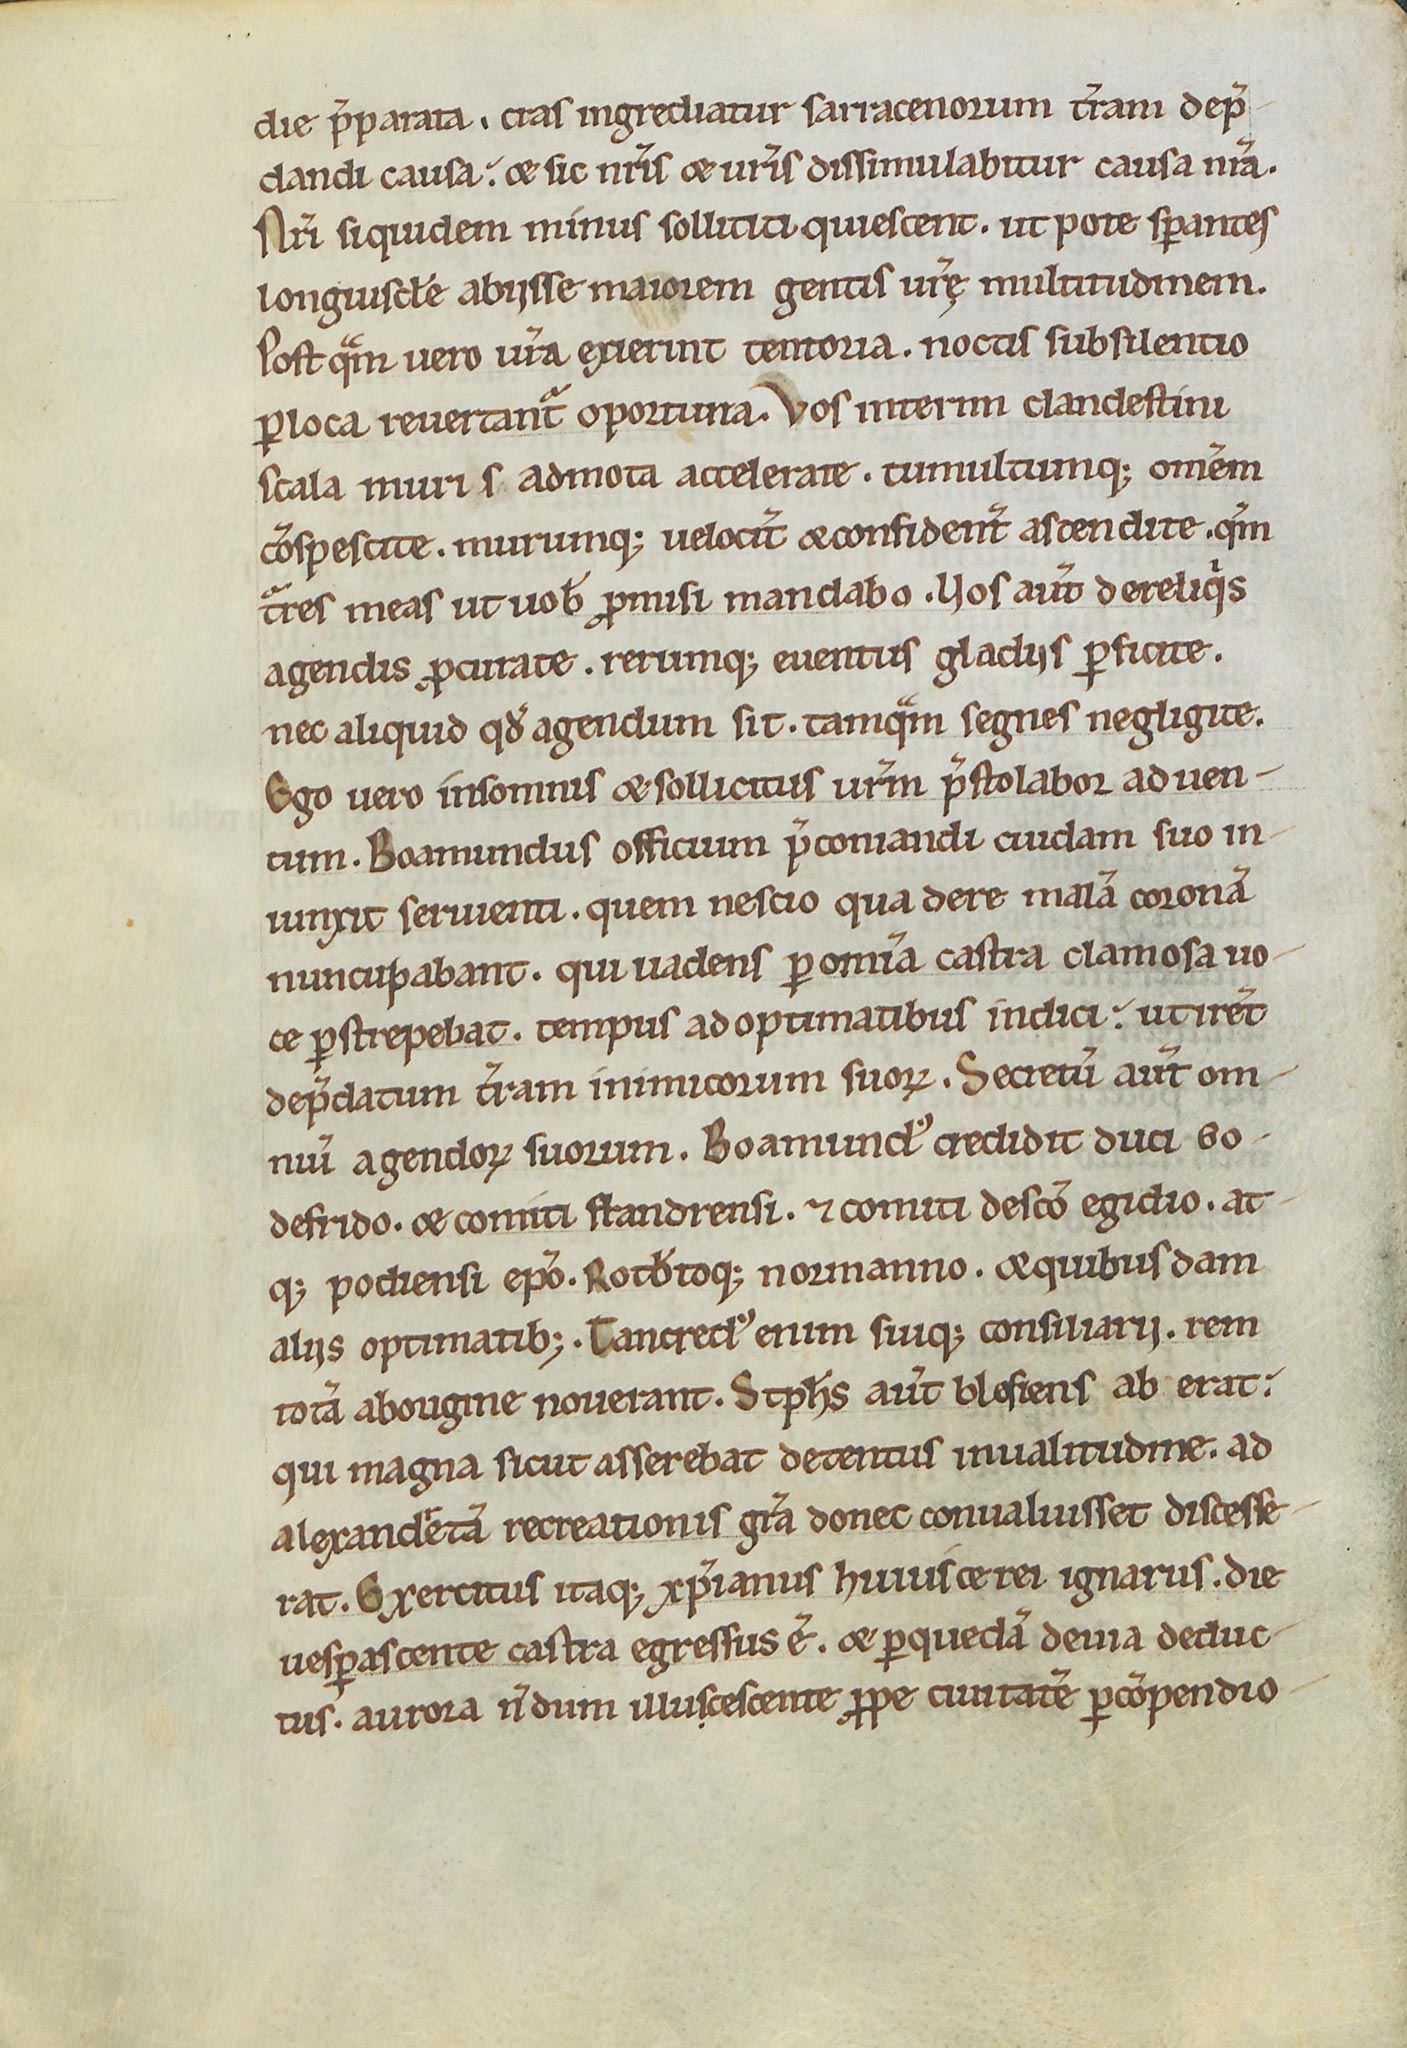 die p̄parata. cras ingrediatur sarracenorum t̄ram dep̄-
dandi causa: & sic nr̄is & ur̄is dissimulabitur causa nr̄a.
Nr̄i siquidem minus solliciti quiescent. ut pote sꝑantes
longiuscl̄e abijsse maiorem gentis ur̄ę multitudinem.
Post qᵃm vero ur̄a exierint tentoria. noctis subsilentio
ꝑ loca revertantᵃ oportuna. Vos interim clandestini
scala muri s admota accelerate. tumultumq; om̄em
cōspescite. murumq; velocit̄ & confident̄ ascendite. qm̄
tᵃres meas ut uob̄ ꝓmisi mandabo. Vos aut̄ de reliqⁱs
agendis ꝓcurate. rerumq; eventus gladijs ꝑficite.
nec aliquid qd̄ agendum sit. tamqᵃm segnes negligite.
Ego vero insomnis & sollicitus ur̄m p̄stolabor ad uen-
tum. Boamundus officium p̄coniandi cuidam suo in-
iunxit servienti. quem nescio qua de re malā coronā
nuncupabant. qui vadens ꝑ om̄ia castra clamosa uo-
ce ꝑstrepebat. tempus ad optimatibus indici: ut iret̄
dep̄datum t̄ram inimicorum suoꝝ. Secretū aut̄ om-
niū agendoꝝ suorum. Boamundꝰ credidit duci Go-
defrido. & comiti flandrensi. ⁊ comiti de scō egidio. at-
q; podiensi ep̄o. Rotb̄toq; normanno. & quibusdam
alijs optimatib;. Tancredꝰ enim suiq; consiliarij. rem
totā ab origine noverant. Stph̄s aut̄ blesiens ab erat:
qui magna sicut asserebat detentus invalitudine. ad
alexandr̄etā recreationis gr̄a donec convaluisset discesse-
rat. Exercitus itaq; xp̄ianus huiusce rei ignarus. die
vesꝑascente castra egressus ē. & ꝑ quedā devia deduc-
tus. aurora n̄ dum illuscescente ꝓpe civitatē ꝑ cōpendio-